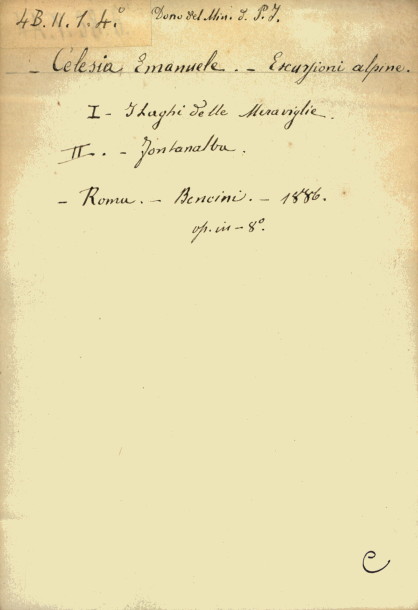 4B.11.1.4.° Dono del Min. d. P. I.
- Celesia Emanuele. - Escursioni alpine.
I - I Laghi delle Meraviglie.
II. - Fontanalba.
- Roma. - Bencini. - 1886.
op. in - 8°.
C